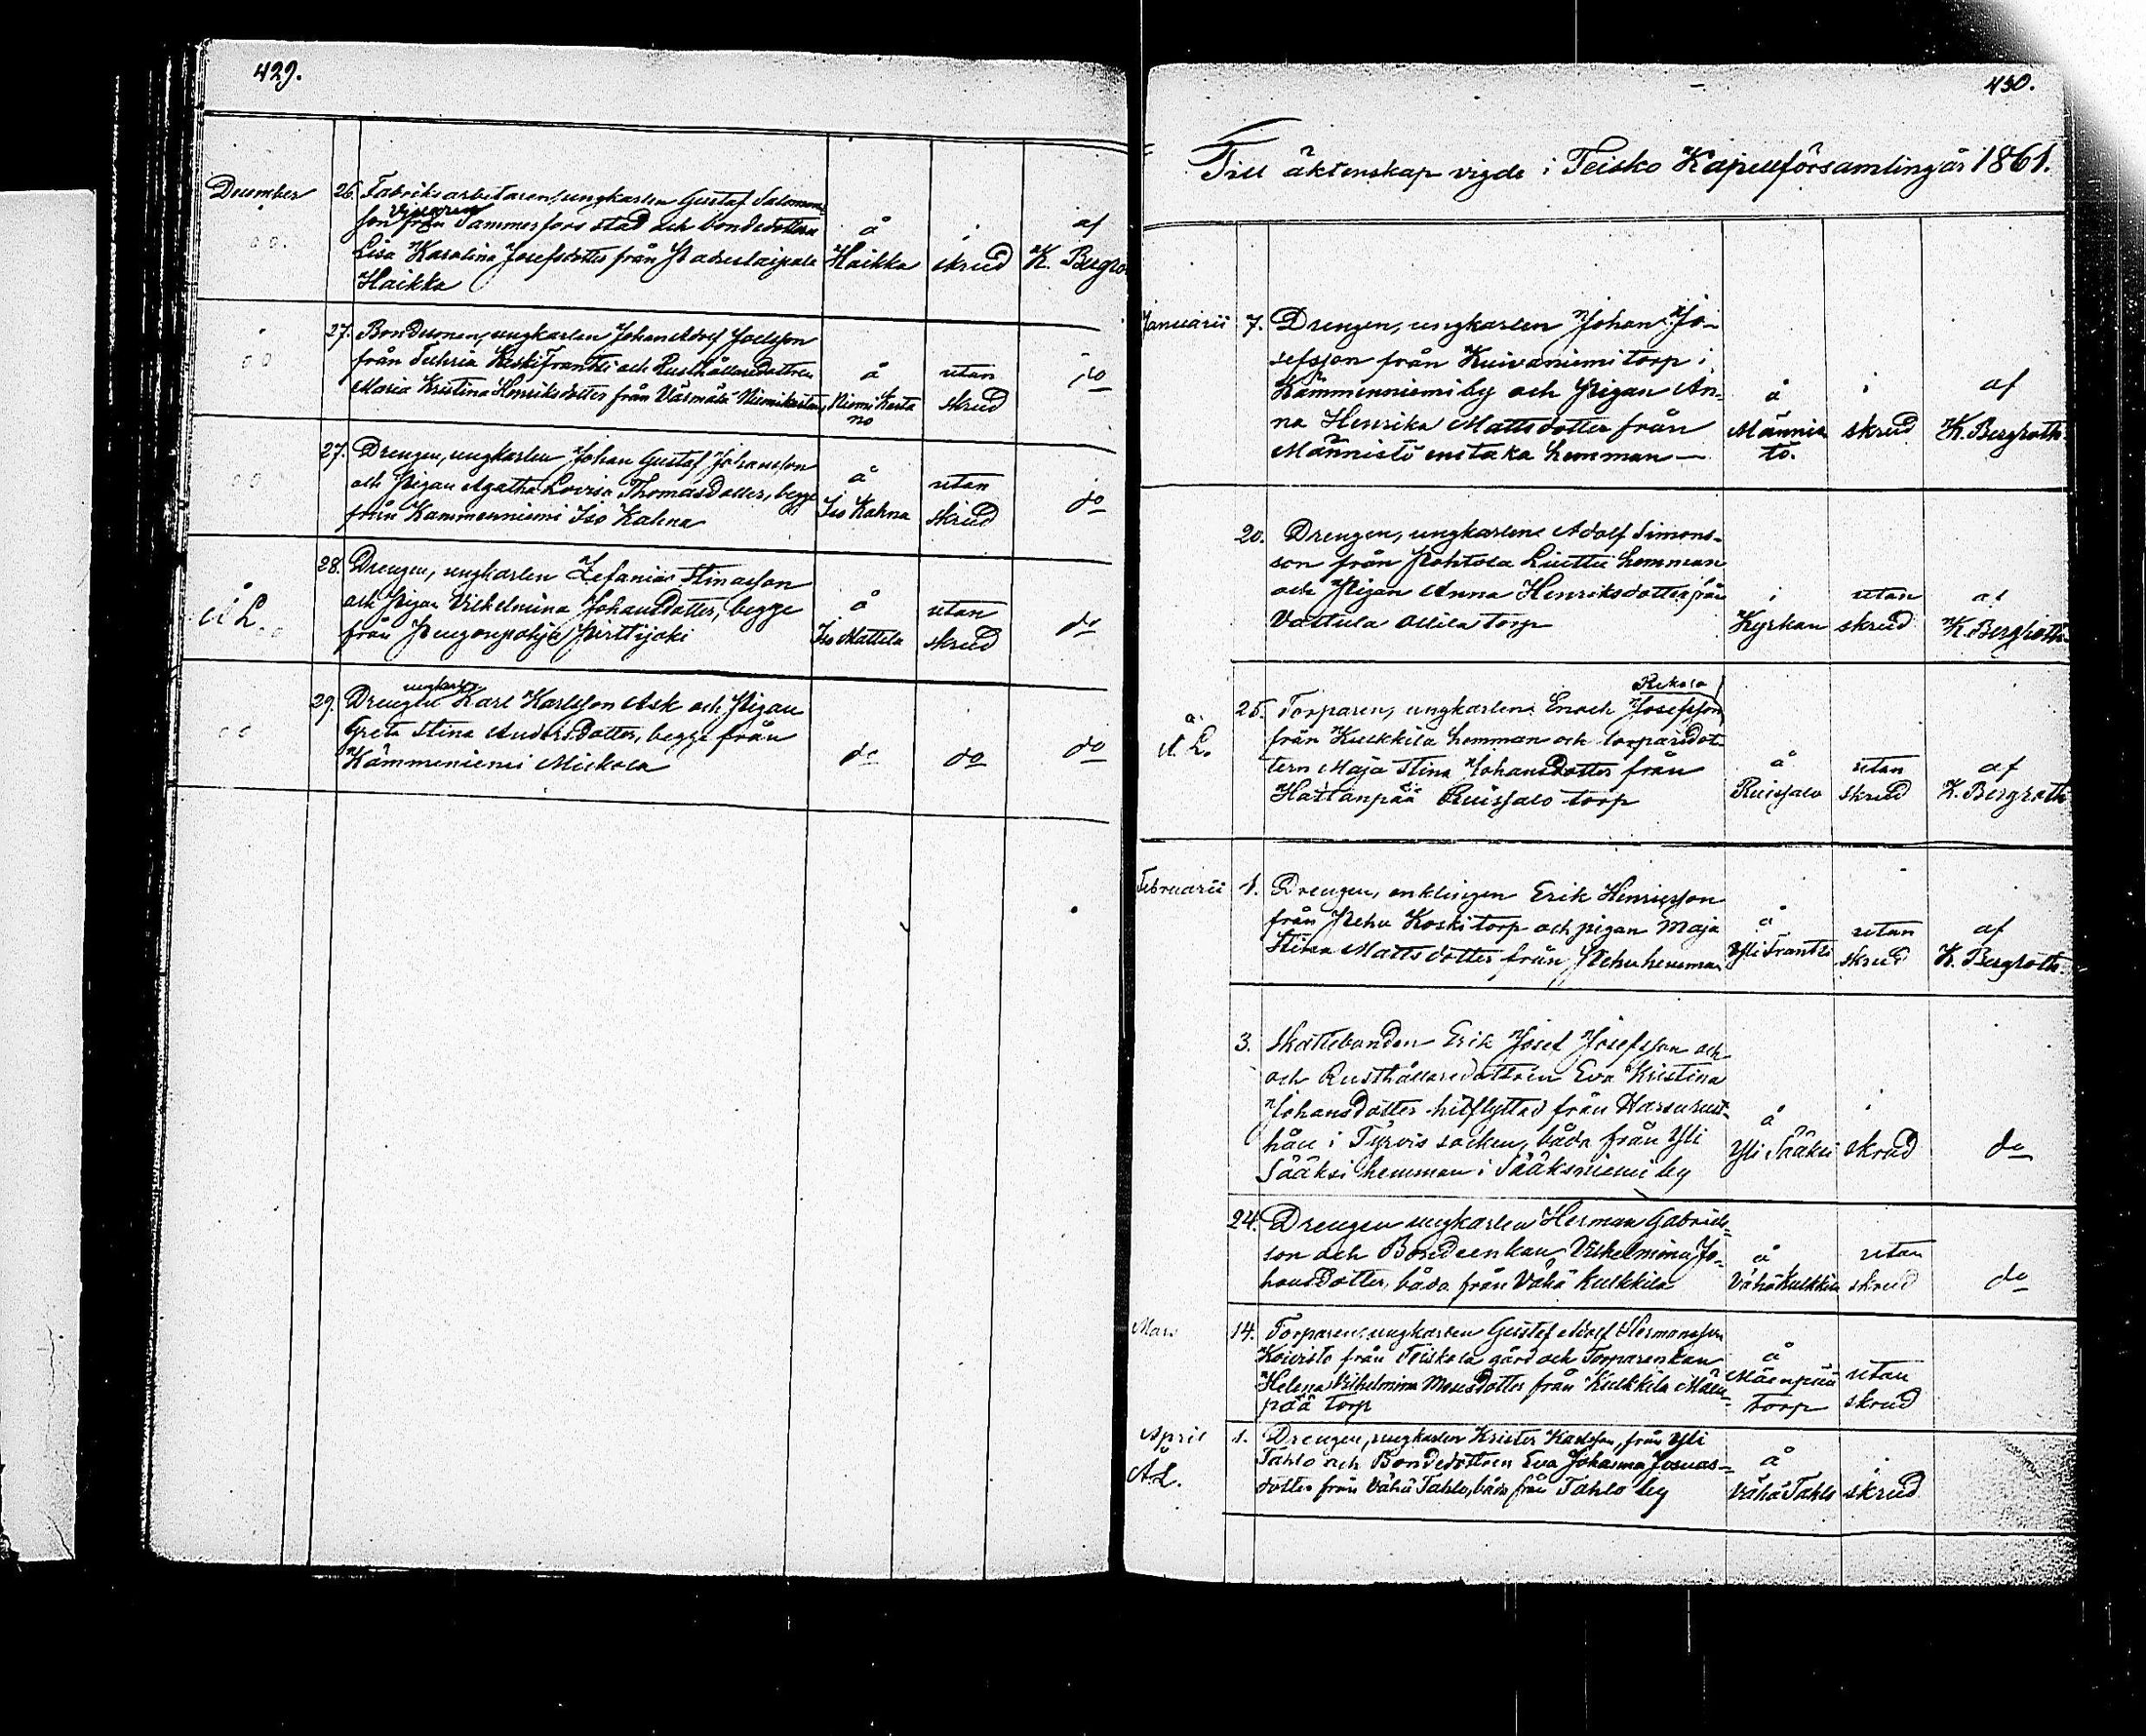 429.
December 26. Fabriksarbetaren, ungkarlen Gustaf Salomons-
son från Tammerfors stad och bondedottren å i af
Lisa Karolina Josefsdotter från Padustaipale Haikka skrud K. Bergro
Haikka
27. Bondesonen, ungkarlen Johan Adolf Joelsson
från Tuhria Keski Frantti och Rusthållaredottren å utan do
Maria Kristina Henriksdotter från Värmälä Niemikartano Niemi Karta skrud
no
27. Drengen, ungkarlen Johan Gustaf Johansson
och Pigan Agatha Lovisa Thomasdotter, begge å utan do
från Kammenniemi Iso Kahna Iso Kahna skrud
28. Drengen, ungkarlen Zefanias Stinasson
Å L. och Pigan Vilhelmina Johansdotter, begge å utan do
från Pengonpohja Pirttijoki Iso Mattila skrud
ungkarlen
29. Drengen Karl Karlsson Ask och Pigan
Greta Stina Andersdotter, begge från
Kämmeniemi Mickola do do do
430.
Till äktenskap vigde i Teisko Kapellförsamling år 1861.
Januarii 7. Drengen, ungkarlen Johan Jo-
sefsson från Kuivaniemi torp i
Kämmenniemi by och Pigan An- å i af
na Henrika Mattsdotter från Männis skrud K. Bergroth.
Männistö enstaka hemman — tö.
20. Drengen, ungkarlen Adolf Simons-
son från Pohtola Liuttu hemman
och Pigan Anna Henriksdotter från i utan af
Vattula Ollila torp Kyrkan skrud K. Bergroth
Rekola
25. Torparen, ungkarlen Enoch Josefsson
Å L. från Kulkkila hemman och torparedot-
tern Maja Stina Johansdotter från å utan af
Hattanpää Ruissalo torp Ruissalo skrud K. Bergroth
Februarii 1. Drengen, enklingen Erik Henricsson
från Pehu Koski torp och pigan Maja å utan af
Stina Mattsdotter från Pehu hemman Yli Frantti skrud K. Bergroth.
3. Skattebonden Erik Josef Josefsson och
och Rusthållaredottren Eva Kristina
Johansdotter hitflyttad från Harsu rust-
håll i Tyrvis socken, båda från Yli å i
Sääksi hemman i Sääksniemi by Yli Sääksi skrud do
24. Drengen ungkarlen Herman Gabriels-
son och Bondeenkan Vilhelmina Jo- å utan
hansdotter, båda från Vähä Kulkkila Vähä Kulkkila skrud do
Mars 14. Torparen, ungkarlen Gustaf Adolf Hermansson
Koivisto från Teiskola gård och Torparenkan å
Helena Vilhelmina Mosesdotter från Kulkkila Mäen- Mäenpää utan
pää torp torp skrud
April 1. Drengen, ungkarlen Krister Karlsson, från Yli
Å.L. Tahlo och Bondedottren Eva Johanna Josuas- å i
dotter från Vähä Tahlo, båda från Tahlo by Vähä Tahlo skrud